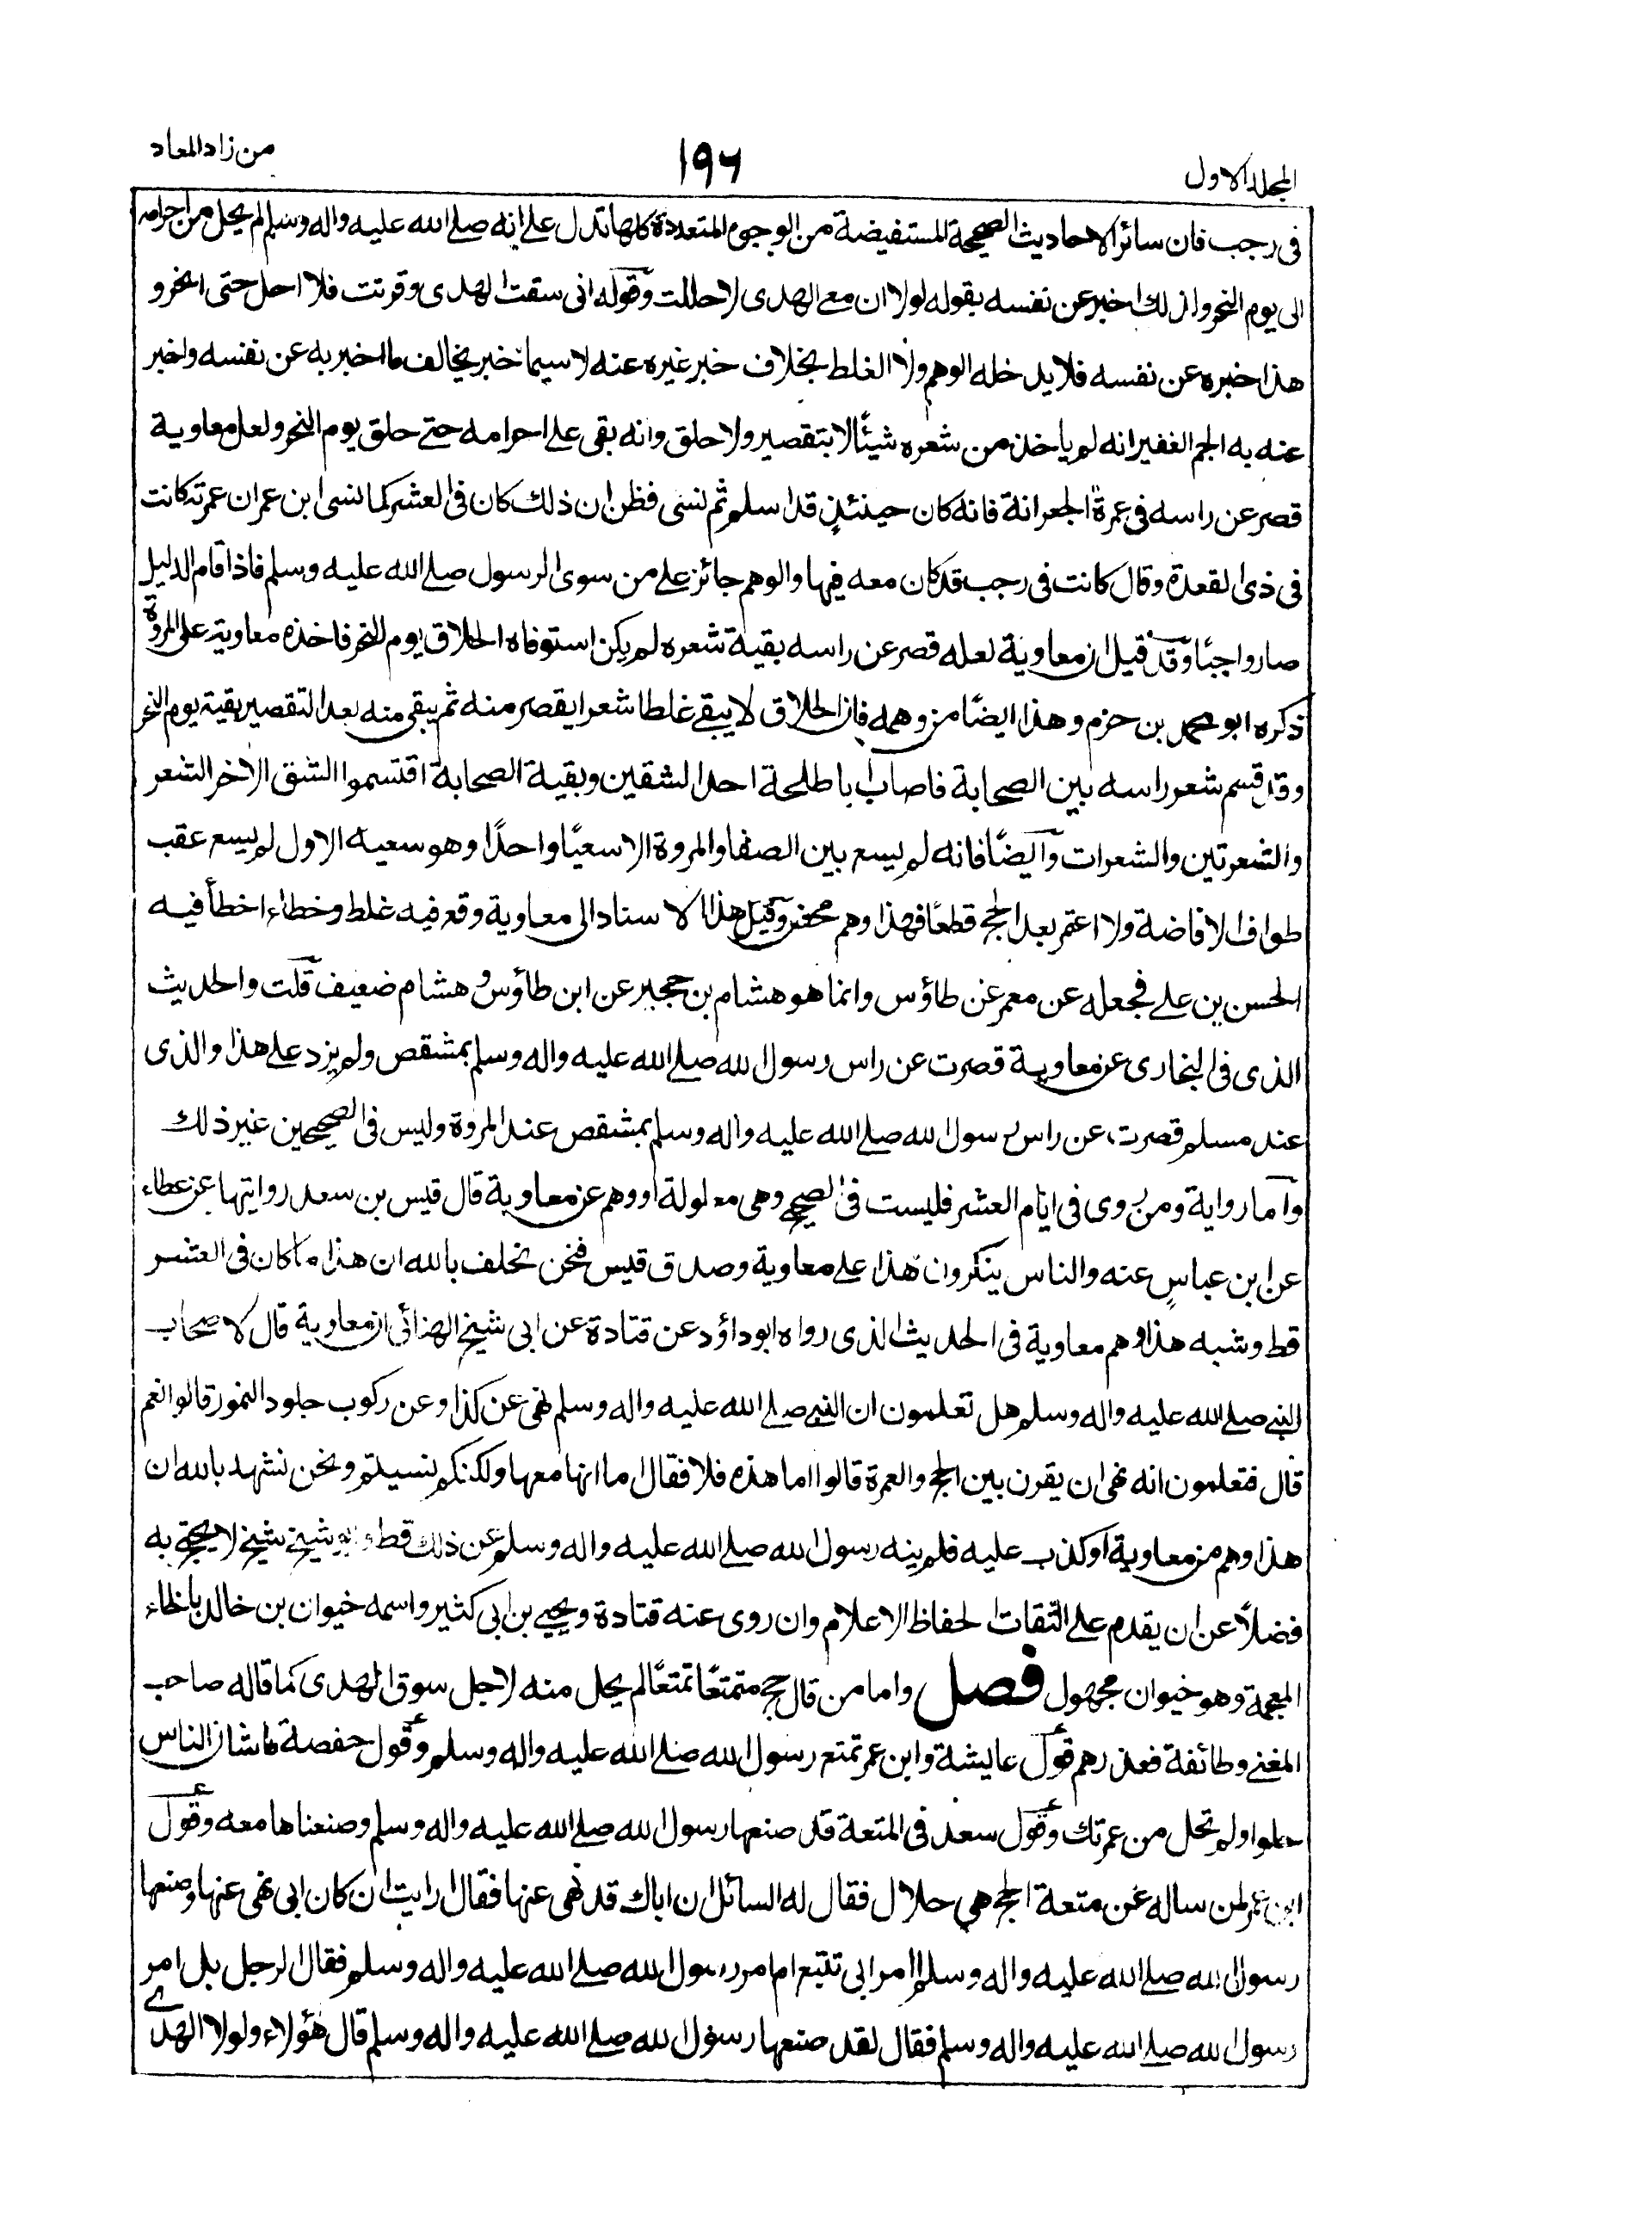 المجلد الاول
۱۹۶
من زاد المعاد
فى رجب فان سائر الاحاديث الصحيحة المستفيضة من الوجوه المتعددة كلها تدل على انه صلى الله عليه واله وسلم لم يحل من احرامه
الى يوم النحر ولذلك اخبر عن نفسه بقوله لولا ان معى الهدى لاحللت وقوله انى سقت الهدى وقرنت فلا احل حتى انحر و
هذا خبره عن نفسه فلا يدخله الوهم ولا الغلط بخلاف خبر غيره عنه لاسيما خبر يخالف ما اخبر به عن نفسه واخبر
عنه به الجم الغفير انه لم ياخذ من شعره شيئًا لا بتقصير ولا حلق وانه بقى على احرامه حتى حلق يوم النحر ولعل معاوية
قصر عن راسه فى عمرة الجعرانة فانه كان حينئذٍ قد اسلم ثم نسى فظن ان ذلك كان فى العشر كما نسى ابن عمر ان عمرته كانت
فى ذى القعدة وقال كانت فى رجب قد كان معه فيها والوهم جائز على من سوى الرسول صلى الله عليه وسلم فاذا قام الدليل
صار واجبًا وقد قيل ان معاوية لعله قصر عن راسه بقية شعره لم يكن استوفاه الحلاق يوم النحر فاخذه معاوية على المروة
ذكره ابو محمد بن حزم وهذا ايضًا من وهمه فان الحلاق لا يبقى غلطا شعرا يقصر منه ثم يبقى منه بعد التقصير بقية يوم النحر
وقد قسم شعر راسه بين الصحابة فاصاب ابا طلحة احد الشقين وبقية الصحابة اقتسموا الشق الاخر الشعر
والشعرتين والشعرات وايضًا فانه لم يسع بين الصفا والمروة الا سعيًا واحدًا وهو سعيه الاول لم يسع عقب
طواف الافاضة ولا اعتمر بعد الحج قطعًا فهذا وهم محض وقيل هذا الاسناد الى معاوية وقع فيه غلط وخطاء اخطأ فيه
الحسن بن على فجعله عن معمر عن طاؤس وانما هو هشام بن حجير عن ابن طاؤس وهشام ضعيف قلت والحديث
الذى فى البخارى عن معاوية قصرت عن راس رسول الله صلى الله عليه واله وسلم بمشقص ولم يزد على هذا والذى
عند مسلم قصرت عن راس رسول الله صلى الله عليه واله وسلم بمشقص عند المروة وليس فى الصحيحين غير ذلك
واما رواية ومن روى فى ايام العشر فليست فى الصحيح وهى معلولة او وهم عن معاوية قال قيس بن سعد روايتها عن عطاء
عن ابن عباسٍ عنه والناس ينكرون هذا على معاوية وصدق قيس فنحن نحلف بالله ان هذا ما كان فى العشر
قط وشبه هذا وهم معاوية فى الحديث الذى رواه ابو داؤد عن قتادة عن ابى شيخ الهنائى ان معاوية قال لاصحاب
النبى صلى الله عليه واله وسلم هل تعلمون ان النبى صلى الله عليه واله وسلم نهى عن كذا وعن ركوب جلود النمور قالوا نعم
قال فتعلمون انه نهى ان يقرن بين الحج والعمرة قالوا اما هذه فلا فقال اما انها معها ولكنكم نسيتم ونحن نشهد بالله ان
هذا وهم من معاوية او كذب عليه فلم ينه رسول الله صلى الله عليه واله وسلم عن ذلك قط وابو شيخ شيخ لا يحتج به
فضلاً عن ان يقدم على الثقات الحفاظ الاعلام وان روى عنه قتادة ويحيى بن ابى كثير واسمه خيوان بن خالد بالخاء
المعجمة وهو خيوان مجهول فصل واما من قال حج متمتعًا تمتعًا لم يحل منه لاجل سوق الهدى كما قاله صاحب
المغنى وطائفة فعذرهم قول عايشة وابن عمر تمتع رسول الله صلى الله عليه واله وسلم وقول حفصة ما شان الناس
حلوا ولم تحل من عمرتك وقول سعد فى المتعة قد صنعها رسول الله صلى الله عليه واله وسلم وصنعناها معه وقول
ابن عمر لمن ساله عن متعة الحج هى حلال فقال له السائل ان اباك قد نهى عنها فقال ارايت ان كان ابى نهى عنها وصنعها
رسول الله صلى الله عليه واله وسلم اامر ابى تتبع ام امر رسول الله صلى الله عليه واله وسلم فقال الرجل بل امر
رسول الله صلى الله عليه واله وسلم فقال لقد صنعها رسول الله صلى الله عليه واله وسلم قال هؤلاء ولولا الهدى